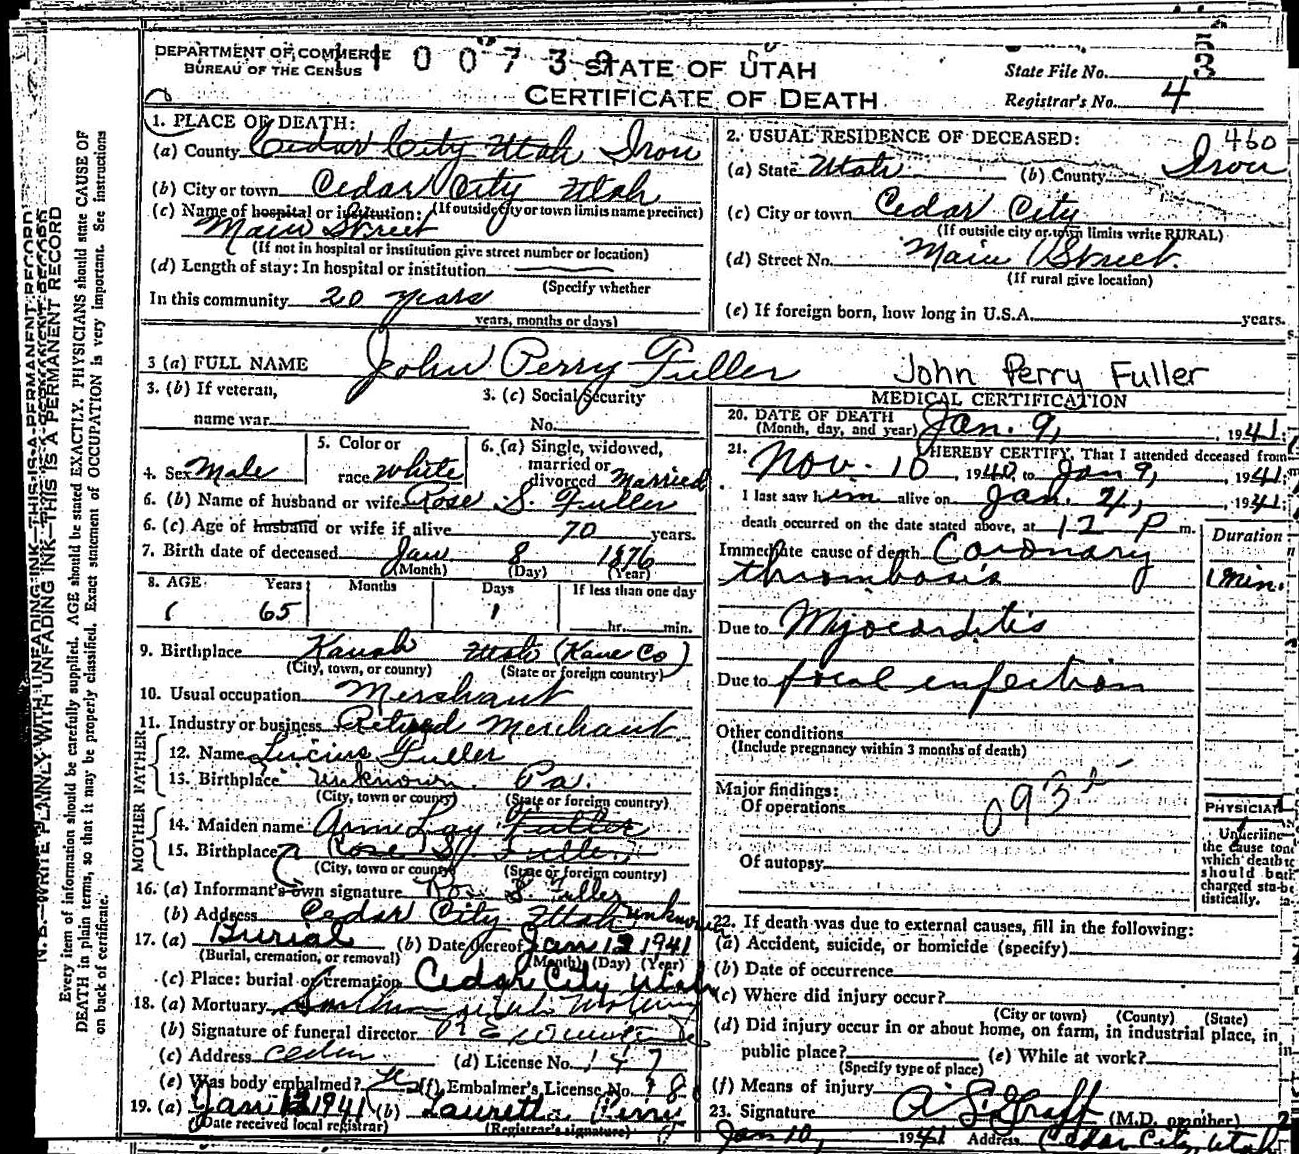 DEPARTMENT OF COMMERCE
BUREAU OF THE CENSUS
STATE OF UTAH
CERTIFICATE OF DEATH
State File No. 3
Registrar's No. 4
1. PLACE OF DEATH:
(a) County Cedar City Utah Iron
(b) City or town Cedar City Utah
(If outside city or town limits name precinct)
(c) Name of hospital or institution:
Main Street
(If not in hospital or institution give street number or location)
(d) Length of stay: In hospital or institution
(Specify whether
In this community 20 years
years, months or days)
2. USUAL RESIDENCE OF DECEASED: 460
(a) State Utah (b) County Iron
(c) City or town Cedar City
(If outside city or town limits write RURAL)
(d) Street No. Main Street
(If rural give location)
(e) If foreign born, how long in U.S.A. years.
3 (a) FULL NAME John Perry Fuller John Perry Fuller
3. (b) If veteran,
name war
3. (c) Social Security
No.
4. Sex Male
5. Color or
race White
6. (a) Single, widowed,
married or
divorced Married
6. (b) Name of husband or wife Rose S. Fuller
6. (c) Age of husband or wife if alive 70 years.
7. Birth date of deceased Jan 8 1876
(Month) (Day) (Year)
8. AGE Years Months Days If less than one day
65 1 hr. min.
9. Birthplace Kanab Utah (Kane Co)
(City, town, or county) (State or foreign country)
10. Usual occupation Merchant
11. Industry or business Retired Merchant
FATHER
12. Name Lucius Fuller
13. Birthplace unknown Pa.
(City, town or county) (State or foreign country)
MOTHER
14. Maiden name Fuller
15. Birthplace Rose S. Fuller
(City, town or county) (State or foreign country)
16. (a) Informant's own signature S. Fuller
(b) Address Cedar City Utah unknown
17. (a) Burial (b) Date thereof Jan 12 1941
(Burial, cremation, or removal) (Month) (Day) (Year)
(c) Place: burial or cremation Cedar City Utah
18. (a) Mortuary
(b) Signature of funeral director
(c) Address Cedar (d) License No. 147
(e) Was body embalmed? Yes (f) Embalmer's License No.
19. (a) Jan 1941 (b) Lauretta Perry
(Date received local registrar) (Registrar's signature)
MEDICAL CERTIFICATION
20. DATE OF DEATH
(Month, day, and year) Jan. 9, 1941
21. I HEREBY CERTIFY, That I attended deceased from
Nov. 10, 1940, to Jan 9, 1941;
I last saw him alive on Jan. 4, 1941;
death occurred on the date stated above, at 12 P m.
Duration
Immediate cause of death Coronary
thrombosis 1 min.
Due to Myocarditis
Due to focal infection
Other conditions
(Include pregnancy within 3 months of death)
Major findings:
Of operations
Of autopsy
PHYSICIAN
Underline
the cause to
which death
should be
charged sta-
tistically.
22. If death was due to external causes, fill in the following:
(a) Accident, suicide, or homicide (specify)
(b) Date of occurrence
(c) Where did injury occur?
(City or town) (County) (State)
(d) Did injury occur in or about home, on farm, in industrial place, in
public place? (e) While at work?
(Specify type of place)
(f) Means of injury
23. Signature A S Graff (M.D. or other)
Jan 10, 1941 Address Cedar City, Utah
N. B.—WRITE PLAINLY WITH UNFADING INK—THIS IS A PERMANENT RECORD
Every item of information should be carefully supplied. AGE should be stated EXACTLY. PHYSICIANS should state CAUSE OF
DEATH in plain terms, so that it may be properly classified. Exact statement of OCCUPATION is very important. See instructions
on back of certificate.